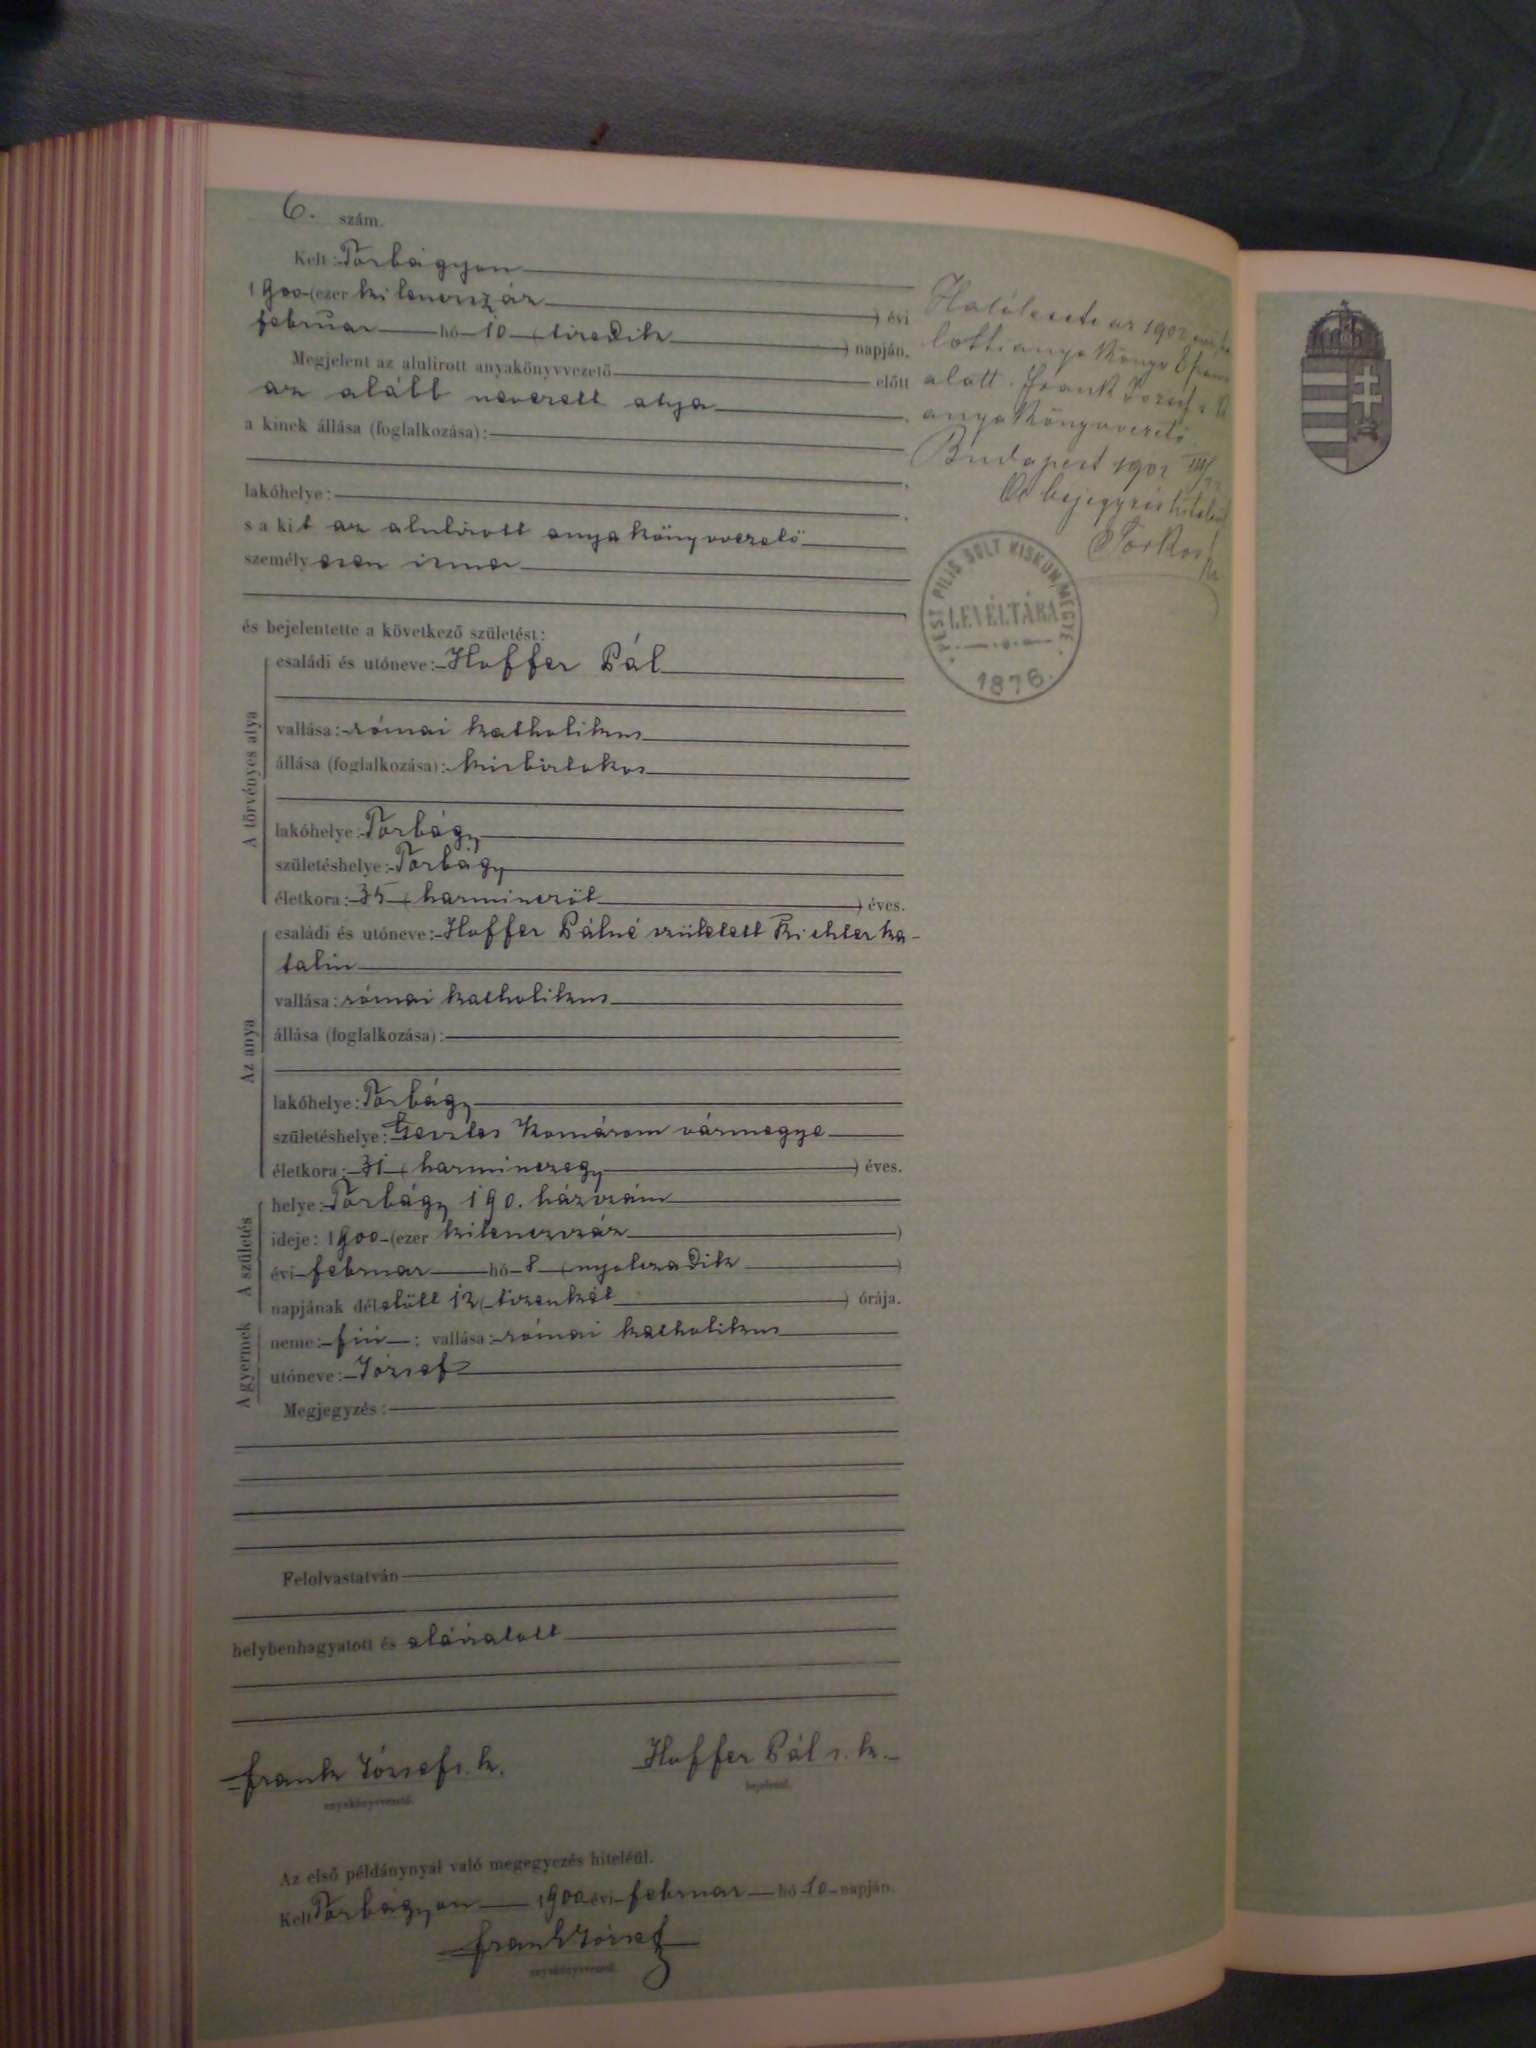 6. szám.
Kelt: Torbágyon
1900 (ezer kilencszáz) évi
február hó 10 (tizedik) napján.
Megjelent az alulirott anyakönyvvezető előtt
az alább nevezett atya,
a kinek állása (foglalkozása):
lakóhelye:
s a kit az alulirott anyakönyvvezető
személyesen ismer
és bejelentette a következő születést:
A törvényes atya
családi és utóneve: Hoffer Pál
vallása: római katholikus
állása (foglalkozása): kisbirtokos
lakóhelye: Torbágy
születéshelye: Torbágy
életkora: 35 (harminczöt) éves.
Az anya
családi és utóneve: Hoffer Pálné született Richler Ka-
talin
vallása: római katholikus
állása (foglalkozása):
lakóhelye: Torbágy
születéshelye: Gesztes Komárom vármegye
életkora: 31 (harminczegy) éves.
A születés
helye: Torbágy 190. házszám
ideje: 1900 (ezer kilenczszáz)
évi február hó 8 (nyolczadik)
napjának délelőtt 12 (tizenkét) órája.
A gyermek
neme: fiú; vallása: római katholikus
utóneve: József
Megjegyzés:
Felolvastatván
helybenhagyatott és aláiratott
Frank József s. k.
anyakönyvvezető.
Hoffer Pál s. k.
bejelentő.
Az első példánynyal való megegyezés hiteléül.
Kelt Torbágyon 1900 évi február hó 10 napján.
Frank József
anyakönyvvezető.
Halálesete az 1902 évi ha
lotti anyakönyv 8 szám
alatt. Frank József s. k.
anyakönyvvezető
Budapest 1902 III/22
A bejegyzés hiteléül
PEST PILIS SOLT KISKUN MEGYE
LEVÉLTÁRA
1876.